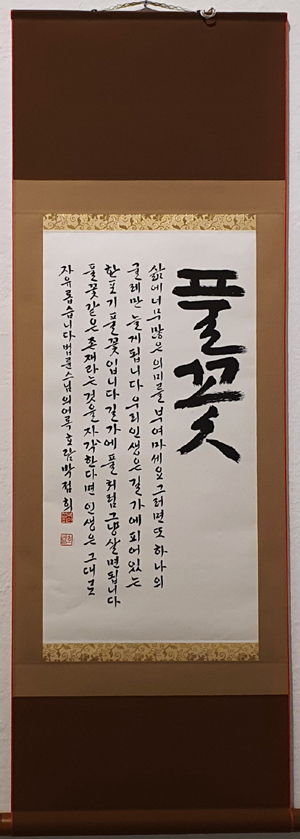 풀꽃
삶에 너무 많은 의미를 부여마세요 그러면 또 하나의
굴레만 늘게 됩니다 우리 인생은 길가에 피어 있는
한포기 풀꽃입니다 길가에 풀처럼 그냥 살면 됩니다
풀꽃같은 존재라는 것을 자각한다면 인생은 그대로
자유롭습니다 법륜스님의 어록 호람 박점희